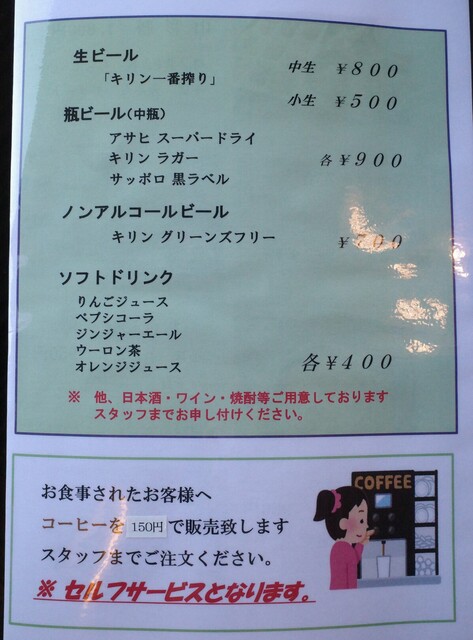 生ビール
「キリン一番搾り」 中生 ￥８００
小生 ￥５００
瓶ビール（中瓶）
アサヒ スーパードライ
キリン ラガー 各￥９００
サッポロ 黒ラベル
ノンアルコールビール
キリン グリーンズフリー ￥７００
ソフトドリンク
りんごジュース
ペプシコーラ
ジンジャーエール
ウーロン茶
オレンジジュース 各￥４００
※ 他、日本酒・ワイン・焼酎等ご用意しております
スタッフまでお申し付けください。
お食事されたお客様へ
コーヒーを 150円 で販売致します
スタッフまでご注文ください。
※ セルフサービスとなります。
COFFEE